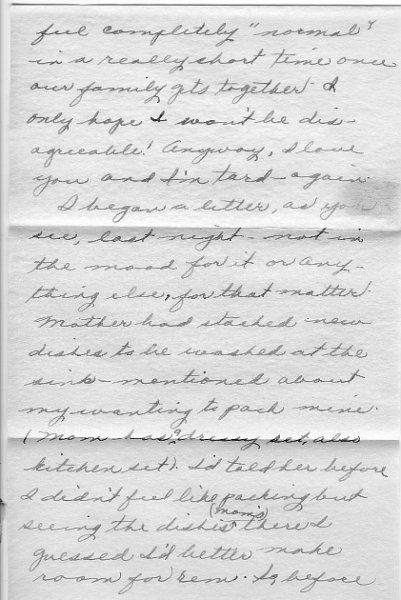 feel completely "normal"
in a really short time once
our family gets together. I
only hope I won't be dis-
agreeable! Anyway, I love
you and I'm tard - again.
I began a letter, as you
see, last night - not in
the mood for it or any-
thing else, for that matter.
Mother had stacked new
dishes to be washed at the
sink - mentioned about
my wanting to pack mine.
(Mom has dressy set, also
kitchen set). I'd told her before
I didn't feel like packing but
(Mom's)
seeing the dishes there I
guessed I'd better make
room for 'em. So, before